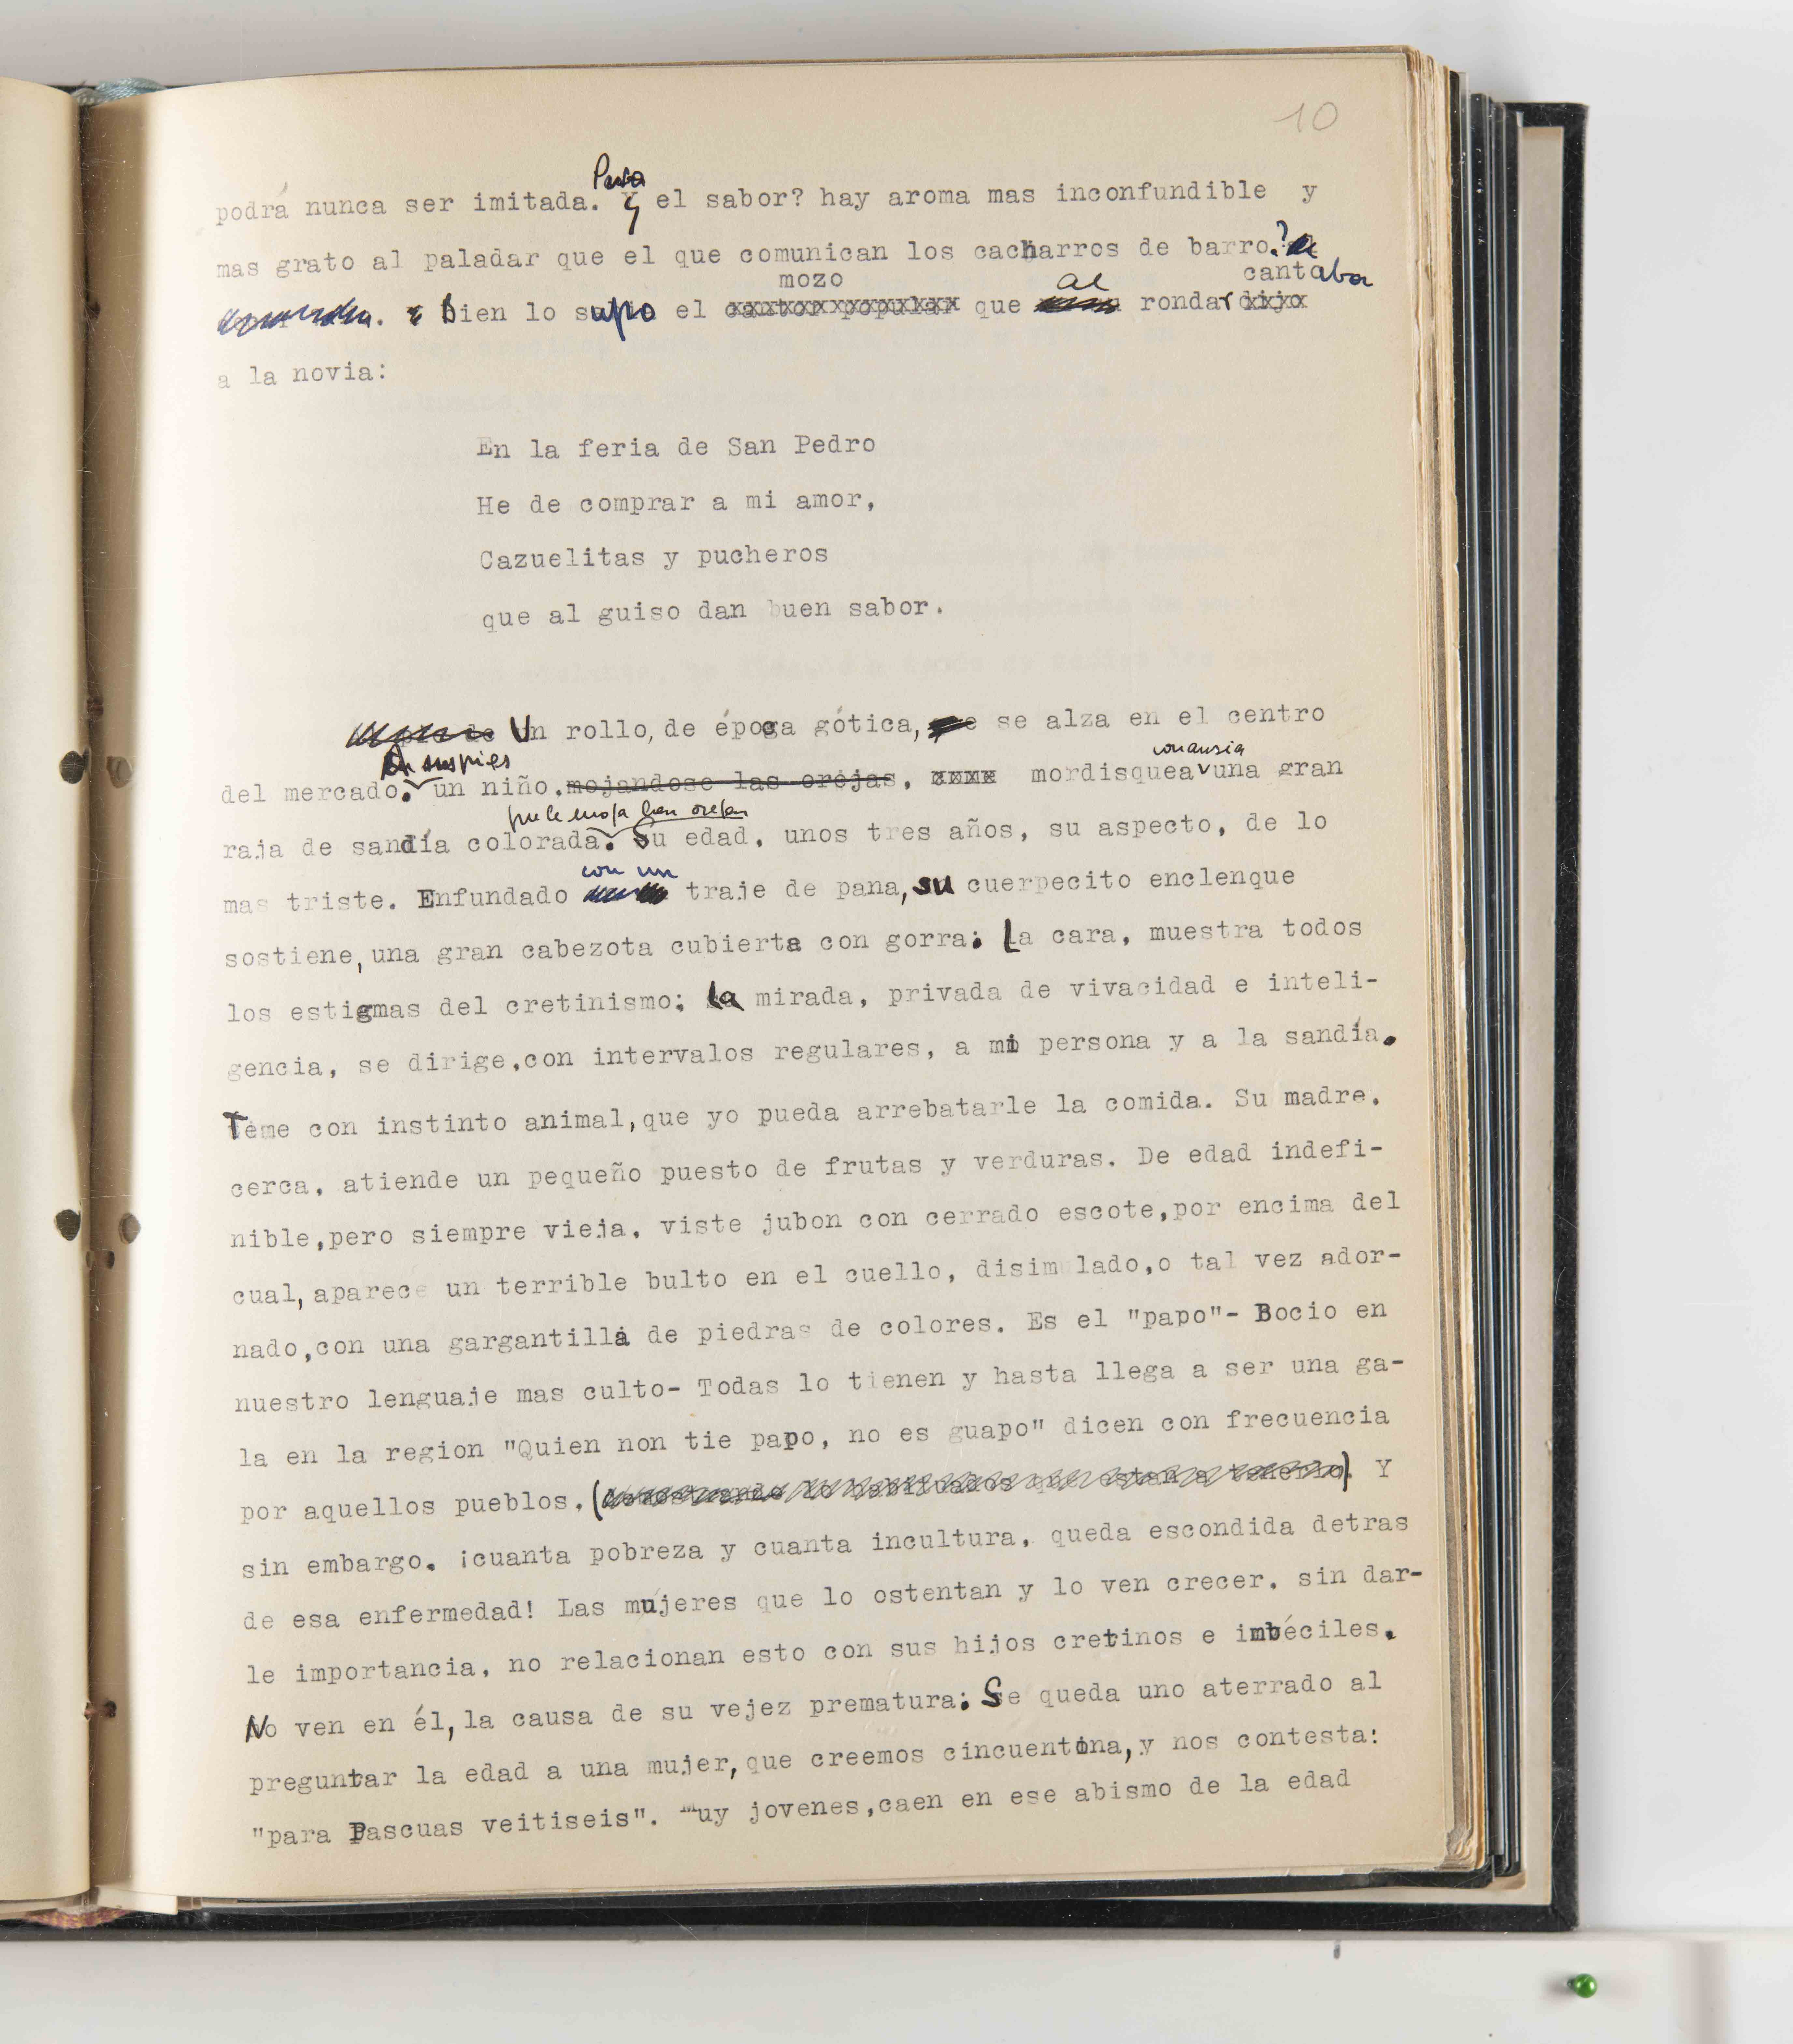 10
podrá nunca ser imitada. Y el sabor? hay aroma mas inconfundible y
mas grato al paladar que el que comunican los cacharros de barro.?
mozo al cantaba
bien lo supo el cantor popular que rondar dijo
a la novia:
En la feria de San Pedro
He de comprar a mi amor,
Cazuelitas y pucheros
que al guiso dan buen sabor.
Un rollo, de época gótica, se alza en el centro
A sus pies con ansia
del mercado. un niño, mojandose las orejas, mordisquea una gran
que le moja las orejas
raja de sandía colorada. Su edad, unos tres años, su aspecto, de lo
con un
mas triste. Enfundado traje de pana, su cuerpecito enclenque
sostiene, una gran cabezota cubierta con gorra; La cara, muestra todos
los estigmas del cretinismo; la mirada, privada de vivacidad e inteli-
gencia, se dirige, con intervalos regulares, a mi persona y a la sandía.
Teme con instinto animal, que yo pueda arrebatarle la comida. Su madre,
cerca, atiende un pequeño puesto de frutas y verduras. De edad indefi-
nible, pero siempre vieja, viste jubon con cerrado escote, por encima del
cual, aparece un terrible bulto en el cuello, disimulado, o tal vez ador-
nado, con una gargantilla de piedras de colores. Es el "papo"- Bocio en
nuestro lenguaje mas culto- Todas lo tienen y hasta llega a ser una ga-
la en la region "Quien non tie papo, no es guapo" dicen con frecuencia
por aquellos pueblos. ( lo habituados que estan a tenerlo). Y
sin embargo, ¡cuanta pobreza y cuanta incultura, queda escondida detras
de esa enfermedad! Las mujeres que lo ostentan y lo ven crecer, sin dar-
le importancia, no relacionan esto con sus hijos cretinos e imbéciles.
No ven en él, la causa de su vejez prematura; Se queda uno aterrado al
preguntar la edad a una mujer, que creemos cincuentona, y nos contesta:
"para Pascuas veitiseis". Muy jovenes, caen en ese abismo de la edad